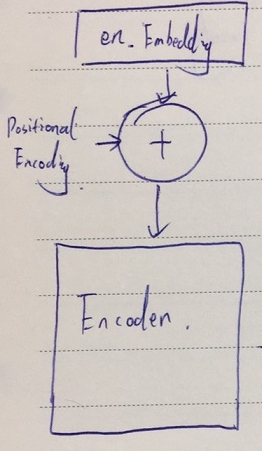 en. Embedding
Positional
Encoding
+
Encoder.